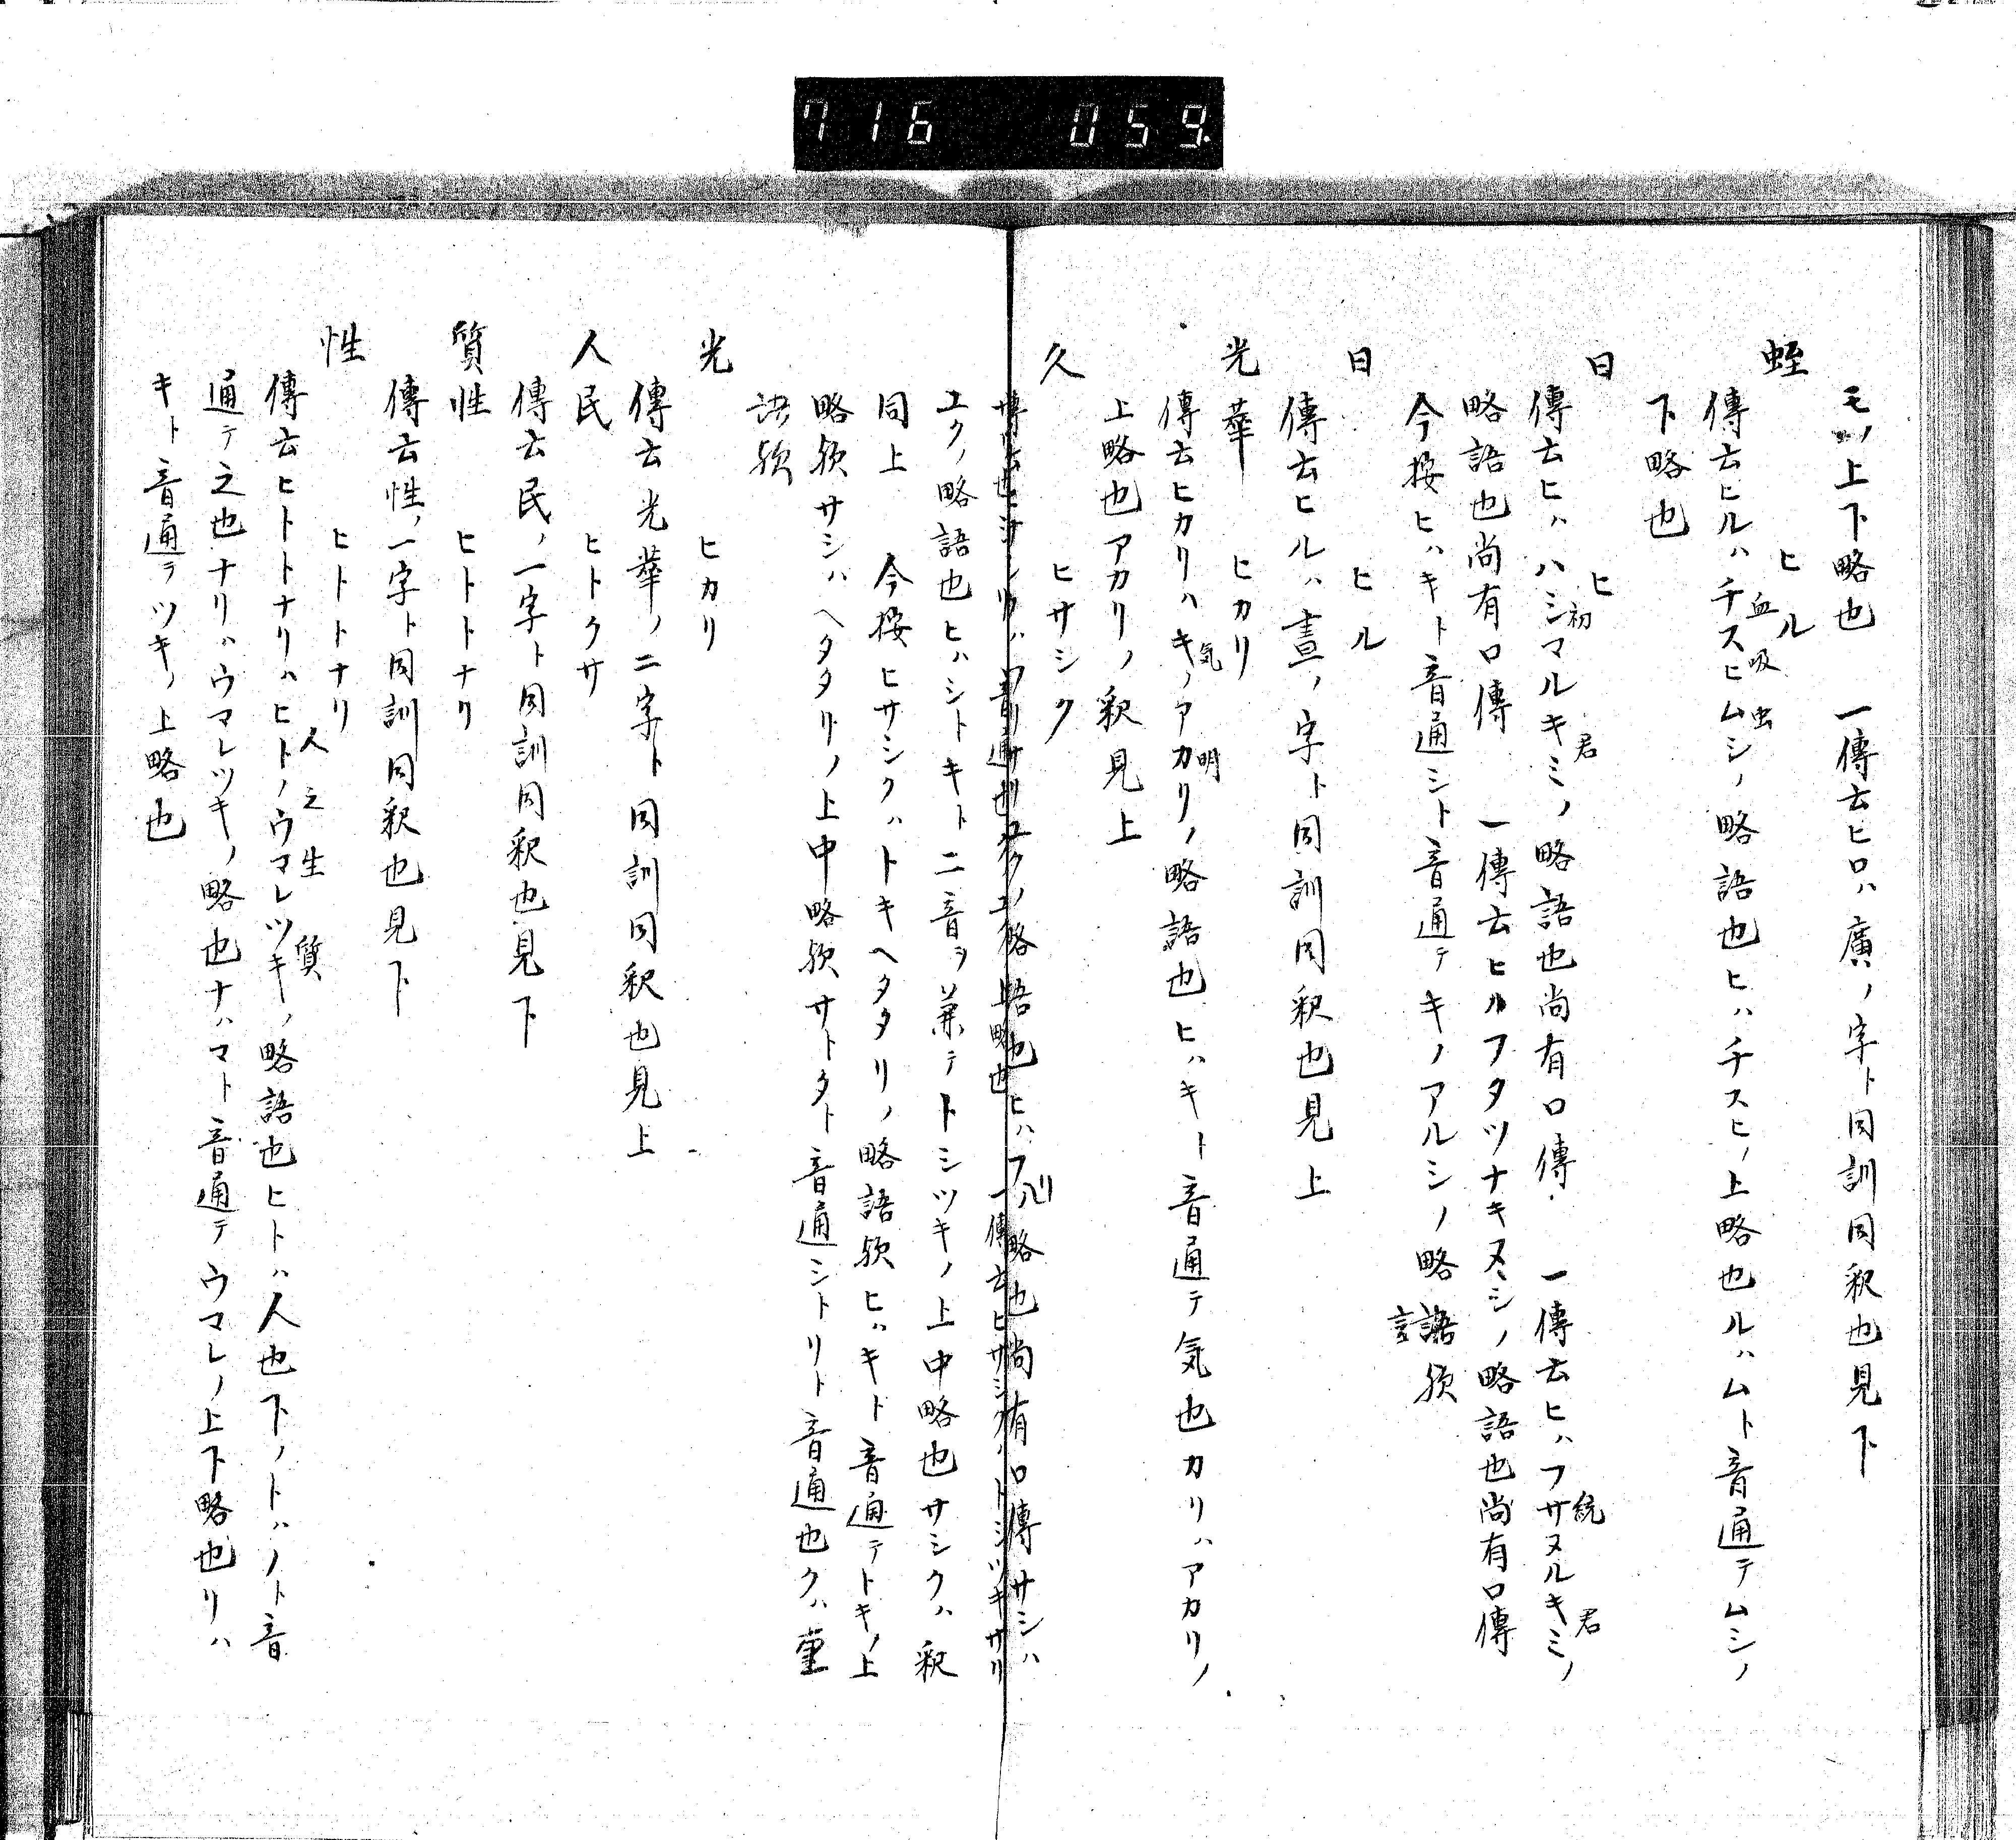 716 059
モノ上下略也 一傳云ヒロハ廣ノ字ト同訓同釈也見下
蛭 ヒル
血 吸 虫
傳云ヒルハチスヒムシノ略語也ヒハチスヒノ上略也ルハムト音通テムシノ
下略也
日 ヒ
初 君 統 君
傳云ヒハハシマルキミノ略語也尚有口傳 一傳云ヒハフサヌルキミノ
略語也尚有口傳 一傳云ヒルフタツナキヌシノ略語也尚有口傳
今按ヒハキト音通シト音通テキノアルシノ略語欤
言
日 ヒル
傳云ヒルハ晝ノ字ト同訓同釈也見上
光華 ヒカリ
気 明
傳云ヒカリハキノアカリノ略語也ヒハキト音通テ気也カリハアカリノ
上略也アカリノ釈見上
久 ヒサシク
略語也ヒハフリノ略也尚有口傳サシハ
一傳云ヒサシクハトシツキサリ
エクノ略語也ヒハシトキト二音ヲ兼テトシツキノ上中略也サシクハ釈
同上 今按ヒサシクハトキヘタタリノ略語欤ヒハキト音通テトキノ上
略欤サシハヘタタリノ上中略欤サトタト音通シトリト音通也クハ重
語欤
光 ヒカリ
傳云光華ノ二字ト同訓同釈也見上
人民 ヒトクサ
傳云民ノ一字ト同訓同釈也見下
質性 ヒトトナリ
傳云性ノ一字ト同訓同釈也見下
性 ヒトトナリ
人之生質
傳云ヒトトナリハヒトノウマレツキノ略語也ヒトハ人也下ノトハノト音
通テ之也ナリハウマレツキノ略也ナハマト音通テウマレノ上下略也リハ
キト音通テツキノ上略也